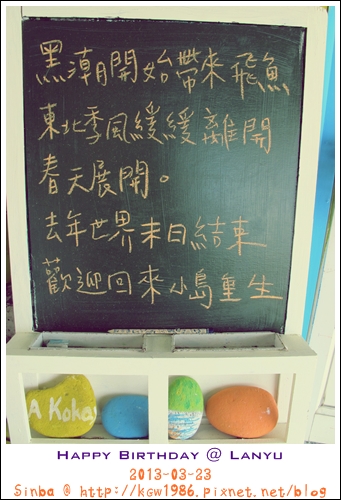 黑潮開始帶來飛魚
東北季風緩緩離開
春天展開。
去年世界末日結束
歡迎回來小島重生
A Koka
Happy Birthday @ Lanyu
2013-03-23
Sinba @ http://kgw1986.pixnet.net/blog